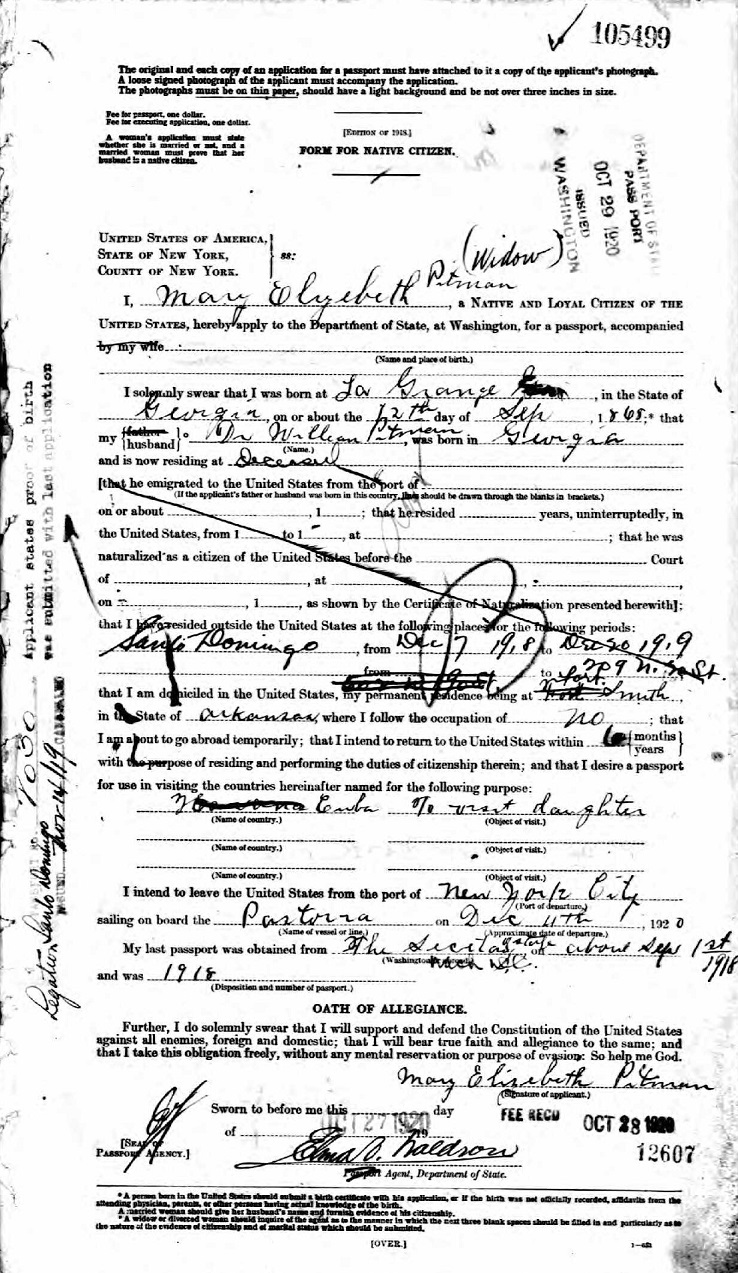 105499
The original and each copy of an application for a passport must have attached to it a copy of the applicant's photograph.
A loose signed photograph of the applicant must accompany the application.
The photographs must be on thin paper, should have a light background and be not over three inches in size.
Fee for passport, one dollar.
Fee for executing application, one dollar.
A woman's application must state
whether she is married or not, and a
married woman must prove that her
husband is a native citizen.
[EDITION OF 1918.]
FORM FOR NATIVE CITIZEN.
DEPARTMENT OF STATE
PASSPORT
OCT 29 1920
ISSUED
WASHINGTON
UNITED STATES OF AMERICA,
STATE OF NEW YORK,
COUNTY OF NEW YORK.
ss:
(Widow)
I, Mary Elyzebeth Pitman, a NATIVE AND LOYAL CITIZEN OF THE
UNITED STATES, hereby apply to the Department of State, at Washington, for a passport, accompanied
by my wife
(Name and place of birth.)
I solemnly swear that I was born at La Grange, in the State of
Georgia, on or about the 12th day of Sep, 1868;* that
my {father husband} Dr William Pitman, was born in Georgia
(Name.)
and is now residing at Deceased
[that he emigrated to the United States from the port of
(If the applicant's father or husband was born in this country, lines should be drawn through the blanks in brackets.)
on or about , 1 ; that he resided years, uninterruptedly, in
the United States, from 1 to 1 , at ; that he was
naturalized as a citizen of the United States before the Court
of , at ,
on , 1 , as shown by the Certificate of Naturalization presented herewith];
that I have resided outside the United States at the following places for the following periods:
Santo Domingo, from Dec 7 1918 to Dec 20 1919
from to
709 N. St.
that I am domiciled in the United States, my permanent residence being at Fort Smith
in the State of Arkansas, where I follow the occupation of No ; that
I am about to go abroad temporarily; that I intend to return to the United States within 6 {months years}
with the purpose of residing and performing the duties of citizenship therein; and that I desire a passport
for use in visiting the countries hereinafter named for the following purpose:
Cuba To visit daughter
(Name of country.) (Object of visit.)
(Name of country.) (Object of visit.)
(Name of country.) (Object of visit.)
I intend to leave the United States from the port of New York City
(Port of departure.)
sailing on board the Pastorra on Dec 11th, 1920
(Name of vessel or line.) (Approximate date of departure.)
My last passport was obtained from The Sec of State on about Sep 1st
1918
Wash D.C.
and was 1918
(Disposition and number of passport.)
OATH OF ALLEGIANCE.
Further, I do solemnly swear that I will support and defend the Constitution of the United States
against all enemies, foreign and domestic; that I will bear true faith and allegiance to the same; and
that I take this obligation freely, without any mental reservation or purpose of evasion: So help me God.
Mary Elizebeth Pitman
(Signature of applicant.)
Sworn to before me this day
of OCT 27 1920 19
FEE RECD OCT 28 1920
12607
[SEAL OF
PASSPORT AGENCY.]
Passport Agent, Department of State.
* A person born in the United States should submit a birth certificate with his application, or if the birth was not officially recorded, affidavits from the
attending physician, parents, or other persons having actual knowledge of the birth.
A married woman should give her husband's name and furnish evidence of his citizenship.
* A widow or divorced woman should inquire of the agent as to the manner in which the next three blank spaces should be filled in and particularly as to
the nature of the evidence of citizenship and of marital status which should be submitted.
[OVER.]
Applicant states proof of birth
was submitted with last application
Legation Santo Domingo
Nov 14/19